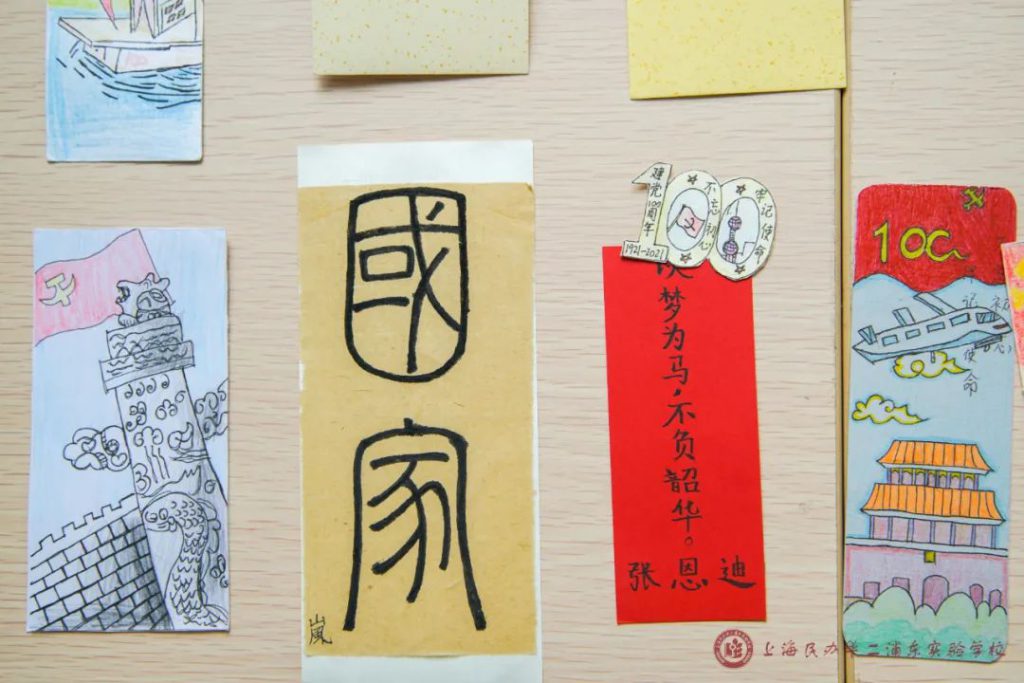 國
家
嵐
100
建党100周年
不忘初心
牢记使命
1921-2021
梦为马，不负韶华。
张恩迪
100
记使命
初心
上海民办华二浦东实验学校